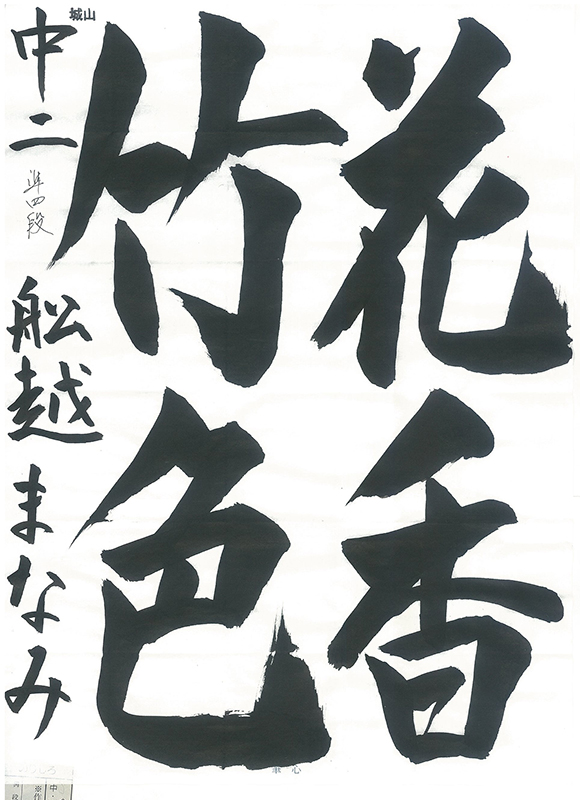 花香
竹色
城山
中二
準四段
舩越まなみ